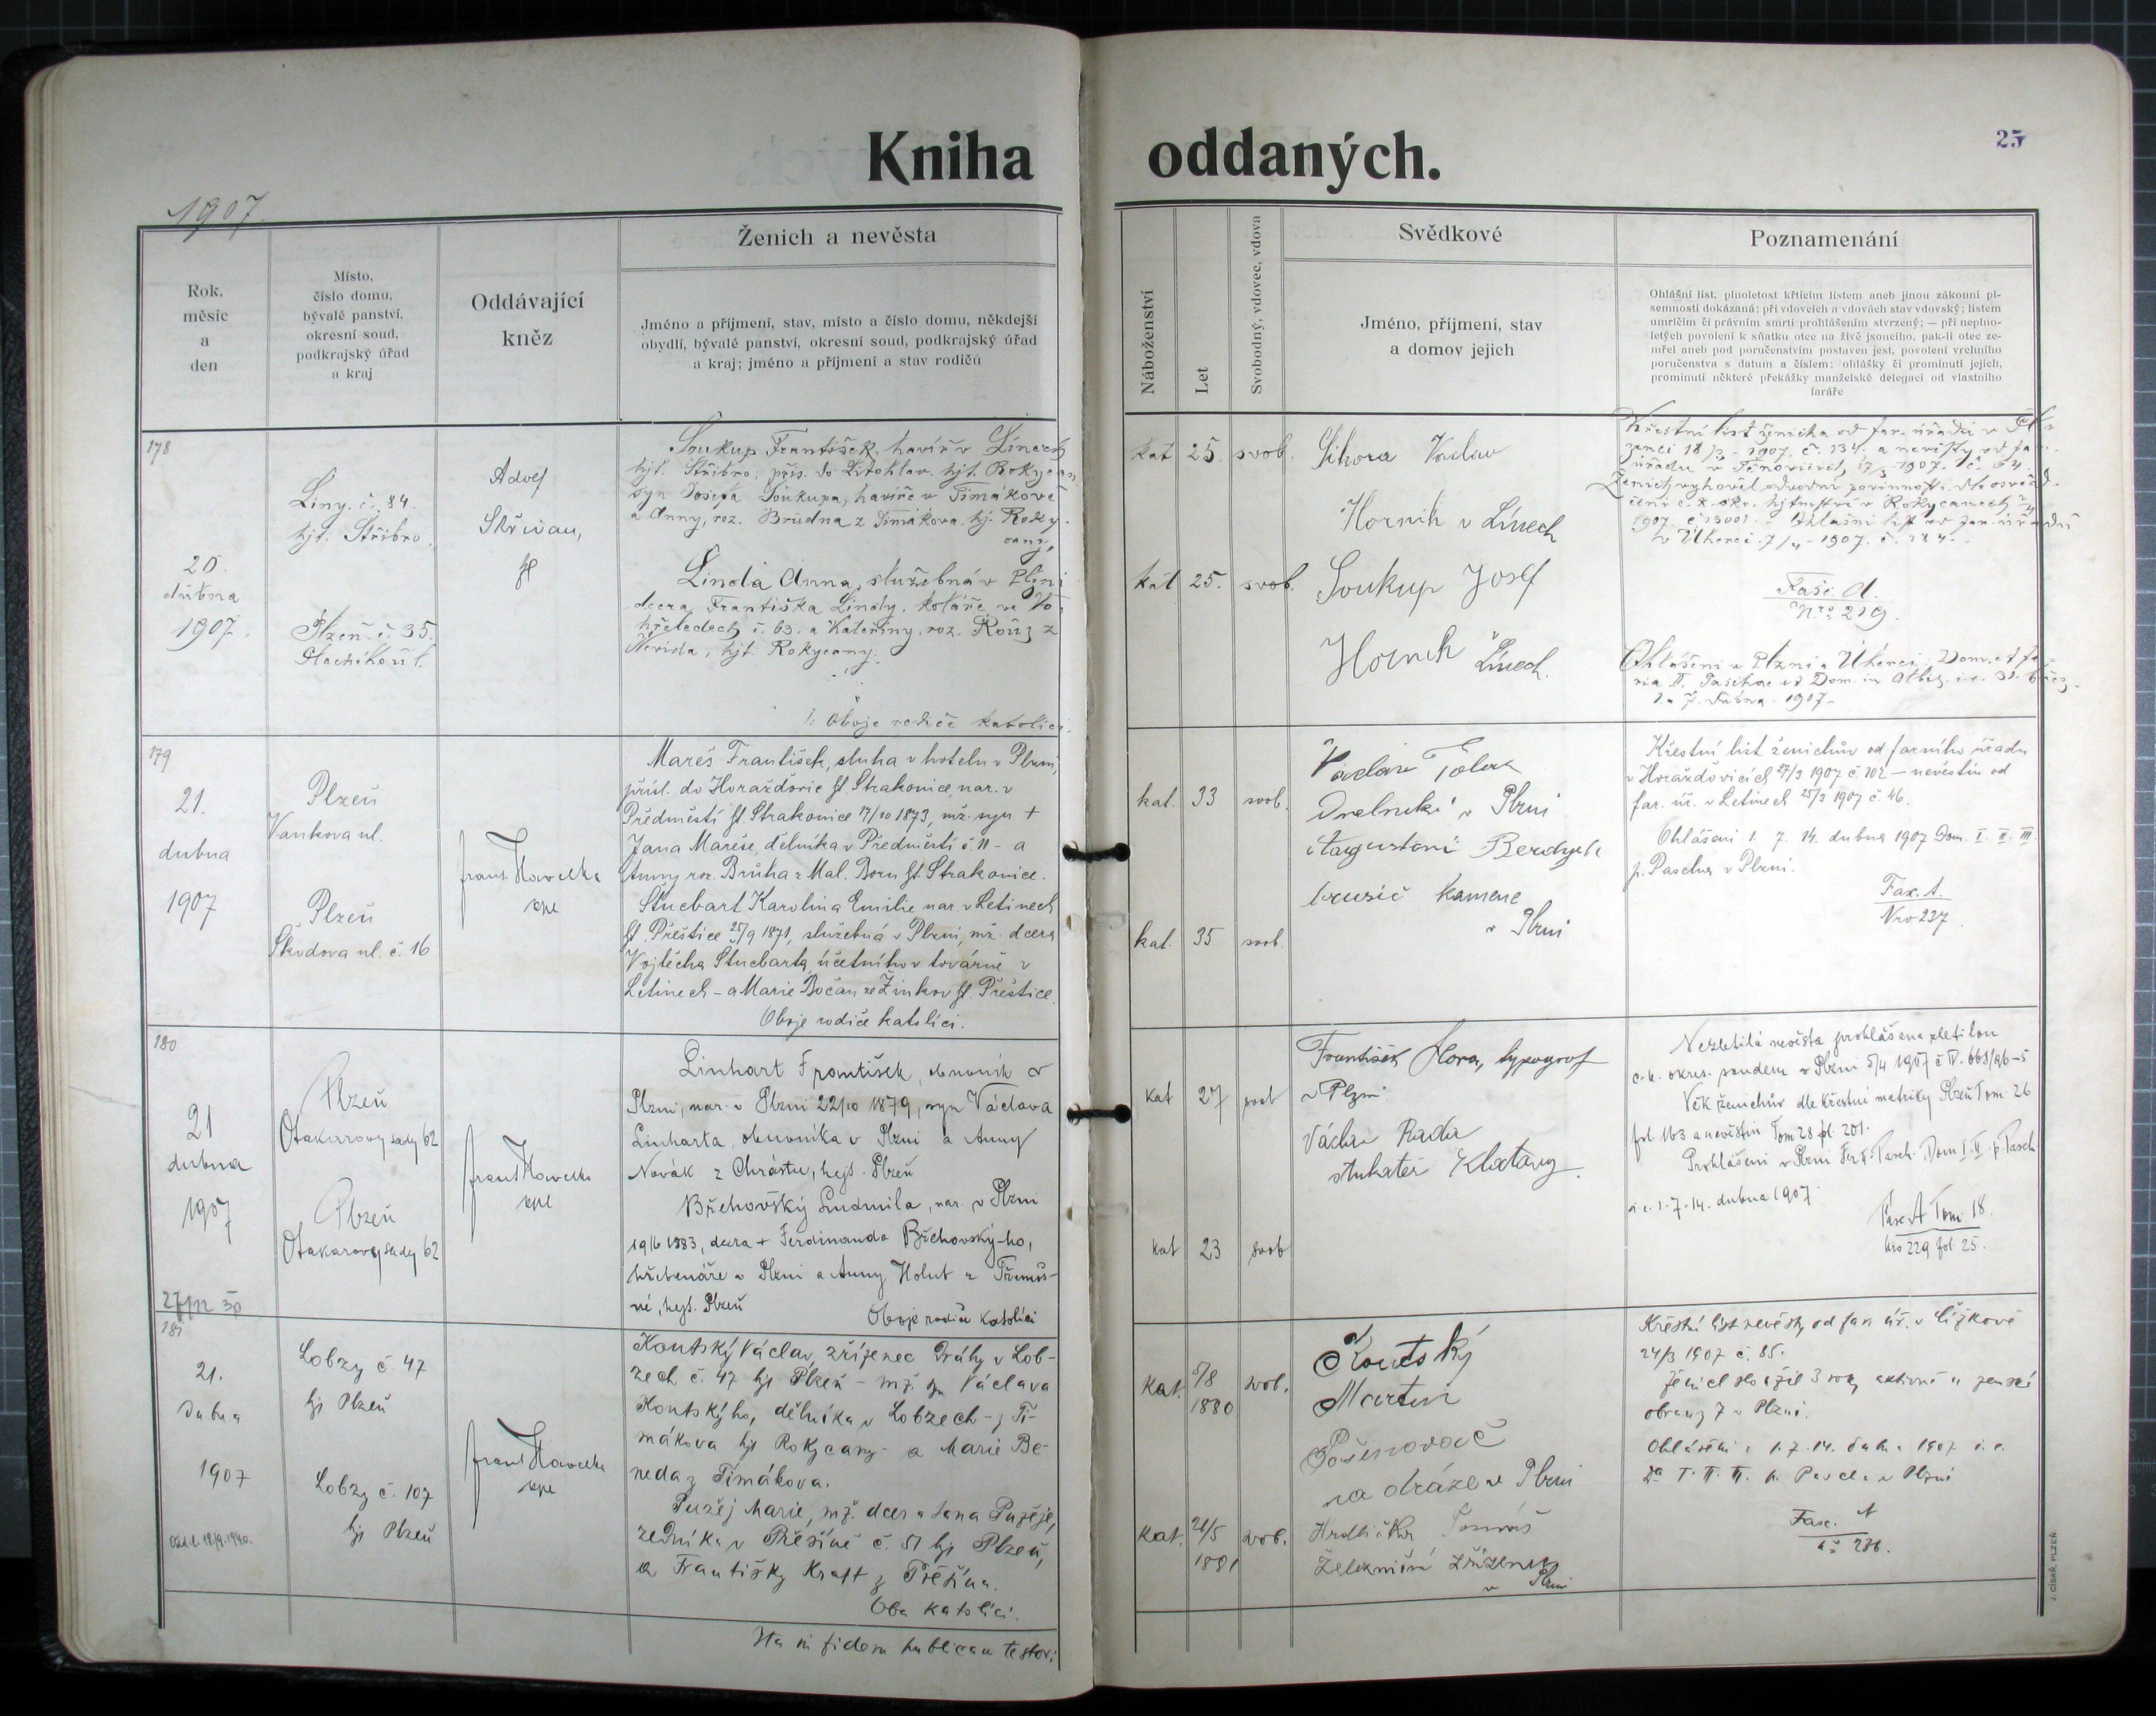 Kniha oddaných.
25
1907.
Rok,
měsíc
a
den
Místo,
číslo domu,
bývalé panství,
okresní soud,
podkrajský úřad
a kraj
Oddávající
kněz
Ženich a nevěsta
Jméno a příjmení, stav, místo a číslo domu, někdejší
obydlí, bývalé panství, okresní soud, podkrajský úřad
a kraj; jméno a příjmení a stav rodičů
Náboženství
Let
Svobodný, vdovec, vdova
Svědkové
Jméno, příjmení, stav
a domov jejich
Poznamenání
Ohlášní list, plnoletost křticím listem aneb jinou zákonní pí-
semností dokázaná; při vdovcích a vdovách stav vdovský; listem
umrlčím či právním smrti prohlášením stvrzený; — při neplno-
letých povolení k sňatku otce na živě jsoucího, pak-li otec ze-
mřel aneb pod poručenstvím postaven jest, povolení vrchního
poručenstva s datum a číslem; ohlášky či prominutí jejich,
prominutí některé překážky manželské delegací od vlastního
faráře
178
20.
dubna
1907.
Liny č. 84.
hjt. Stříbro
Plzeň č. 35.
Adolf
Střivan,
Soukup František, havíř v Línech
hjt. Stříbro; přís. do Litohlav hjt. Rokycan
syn Josefa Soukupa, havíře v Tímákově
a Anny, roz. Brůdna z Tímákova hj. Roky-
cany,
Linda Anna, služebná v Plzni
dcera Františka Lindy, koláře ve Vo-
č. 63. a Kateřiny, roz. z
hjt. Rokycany.
Oboje rodiče katolíci.
kat 25. svob.
kat 25. svob.
Sikora Vaclav
Hornik v Línech
Soukup Josef
Hornik Línech.
Křestní list ženicha od far. úřadu v
1907. č. 134. a nevěsty od far.
úřadu v 1907. č. 64.
Ženich vyhověl odvodní povinnosti dle osvěd-
čení c. k. okr. hejtmství v Rokycanech
1907. č. 13001. Ohlašní list od far. úřadu
v Úherci 7/4 1907. č. 284.
Fasc. A.
Nro. 219.
Ohlášeni v Plzni a Úherci
dubna 1907
179
21.
dubna
1907
Plzeň
Vankova ul.
Plzeň
Škodova ul. č. 16
Frant. Havelka
Mareš František, sluha v hotelu v Plzni,
přísl. do Horažďovic hjt. Strakonice, nar. v
Předměstí hjt. Strakonice 17/10 1873, mž. syn +
Jana Mareše, dělníka v Předměstí č 11 - a
Anny roz. Brůha z Mal. Boru hjt. Strakonice.
Stuebart Karolina Emilie nar. v Letinech
hjt. Přeštice 25/9 1871, služebná v Plzni, mž. dcera
Vojtěcha Stuebarta, účetního v továrně v
Letinech - a Marie Bočan ze Žinkov hjt. Přeštice.
Oboje rodiče katolíci.
kat. 33 svob.
kat. 35 svob.
Václav
v Plzni
kamene
v Plzni
Křestní list ženichův od farního úřadu
v Horažďovicích 27/3 1907 č 102 — nevěstin od
far. úř. v Letinech 25/3 1907 č. 46.
Ohlášeni 1. 7. 14. dubna 1907 Dom. I. II. III.
p. Pascha v Plzni.
Fasc. A.
Nro 237
180
21
dubna
1907
Plzeň
Otakarovy sady 62
Plzeň
Otakarovy sady 62
Frant. Havelka
Linhart František, obuvník v
Plzni, nar. v Plzni 22/10 1879, syn Václava
Linharta, obuvníka v Plzni a Anny
Novák z Chrástu, hejt. Plzeň
Břehovský Ludmila, nar. v Plzni
19/6 1883, dcera + Ferdinanda Břehovský-ho,
hřebenáře v Plzni a Anny Holub z Třemoš-
né, hejt. Plzeň
Oboje rodiče katolíci
kat 27 svob
kat 23 svob
František Hora, typograf
v Plzni.
Václav Rada
stukatér Klatovy.
Nezletilá nevěsta prohlášena zletilou
c. k. okres. soudem v Plzni 5/4 1907 č IV. 668/96-5
Věk ženichův dle křestní matriky Plzeň Tom. 26
fol. 163 a nevěstin Tom 28 fol. 201.
Prohlášeni v Plzni Fer. II. Pasch. Dom I. II. p. Pasch.
i. e. 1. 7. 14. dubna 1907.
Fasc A Tom. 18.
Nro 229 fol. 25.
181
21.
dubna
1907
Lobzy č. 47
hj Plzeň
Lobzy č. 107
hj Plzeň
Frant. Havelka
Koutský Václav, zřízenec dráhy v Lob-
zech č. 47 hj Plzeň - mž. syn Václava
Koutského, dělníka v Lobzech - z Tí-
mákova hj Rokycany - a Marie Be-
neda z Tímákova.
Pužej Marie, mž. dcera Jana Pužeje,
zedníka v Přešíně č. 51 hj Plzeň,
a Františky Kraft z Přešína.
Oba katolíci.
Kat. 5/8 1880 svob.
Kat. 21/5 1881 svob.
Koutský
Martin
Pošinovač
na dráze v Plzni
Hrdlička Tomáš
železniční zřízenec
v Plzni
Křestní list nevěsty od far. úř. v
24/3 1907 č. 85.
Ženich sloužil 3 roky aktivně u zemské
obrany 7 v Plzni.
Ohlášeni: 1. 7. 14. dubna 1907 i. e.
Da I. II. III. p. Pascha v Plzni
Fasc. A
č. 236.
Ita in fidem publicam testor:
J. CÍSAŘ, PLZEŇ.